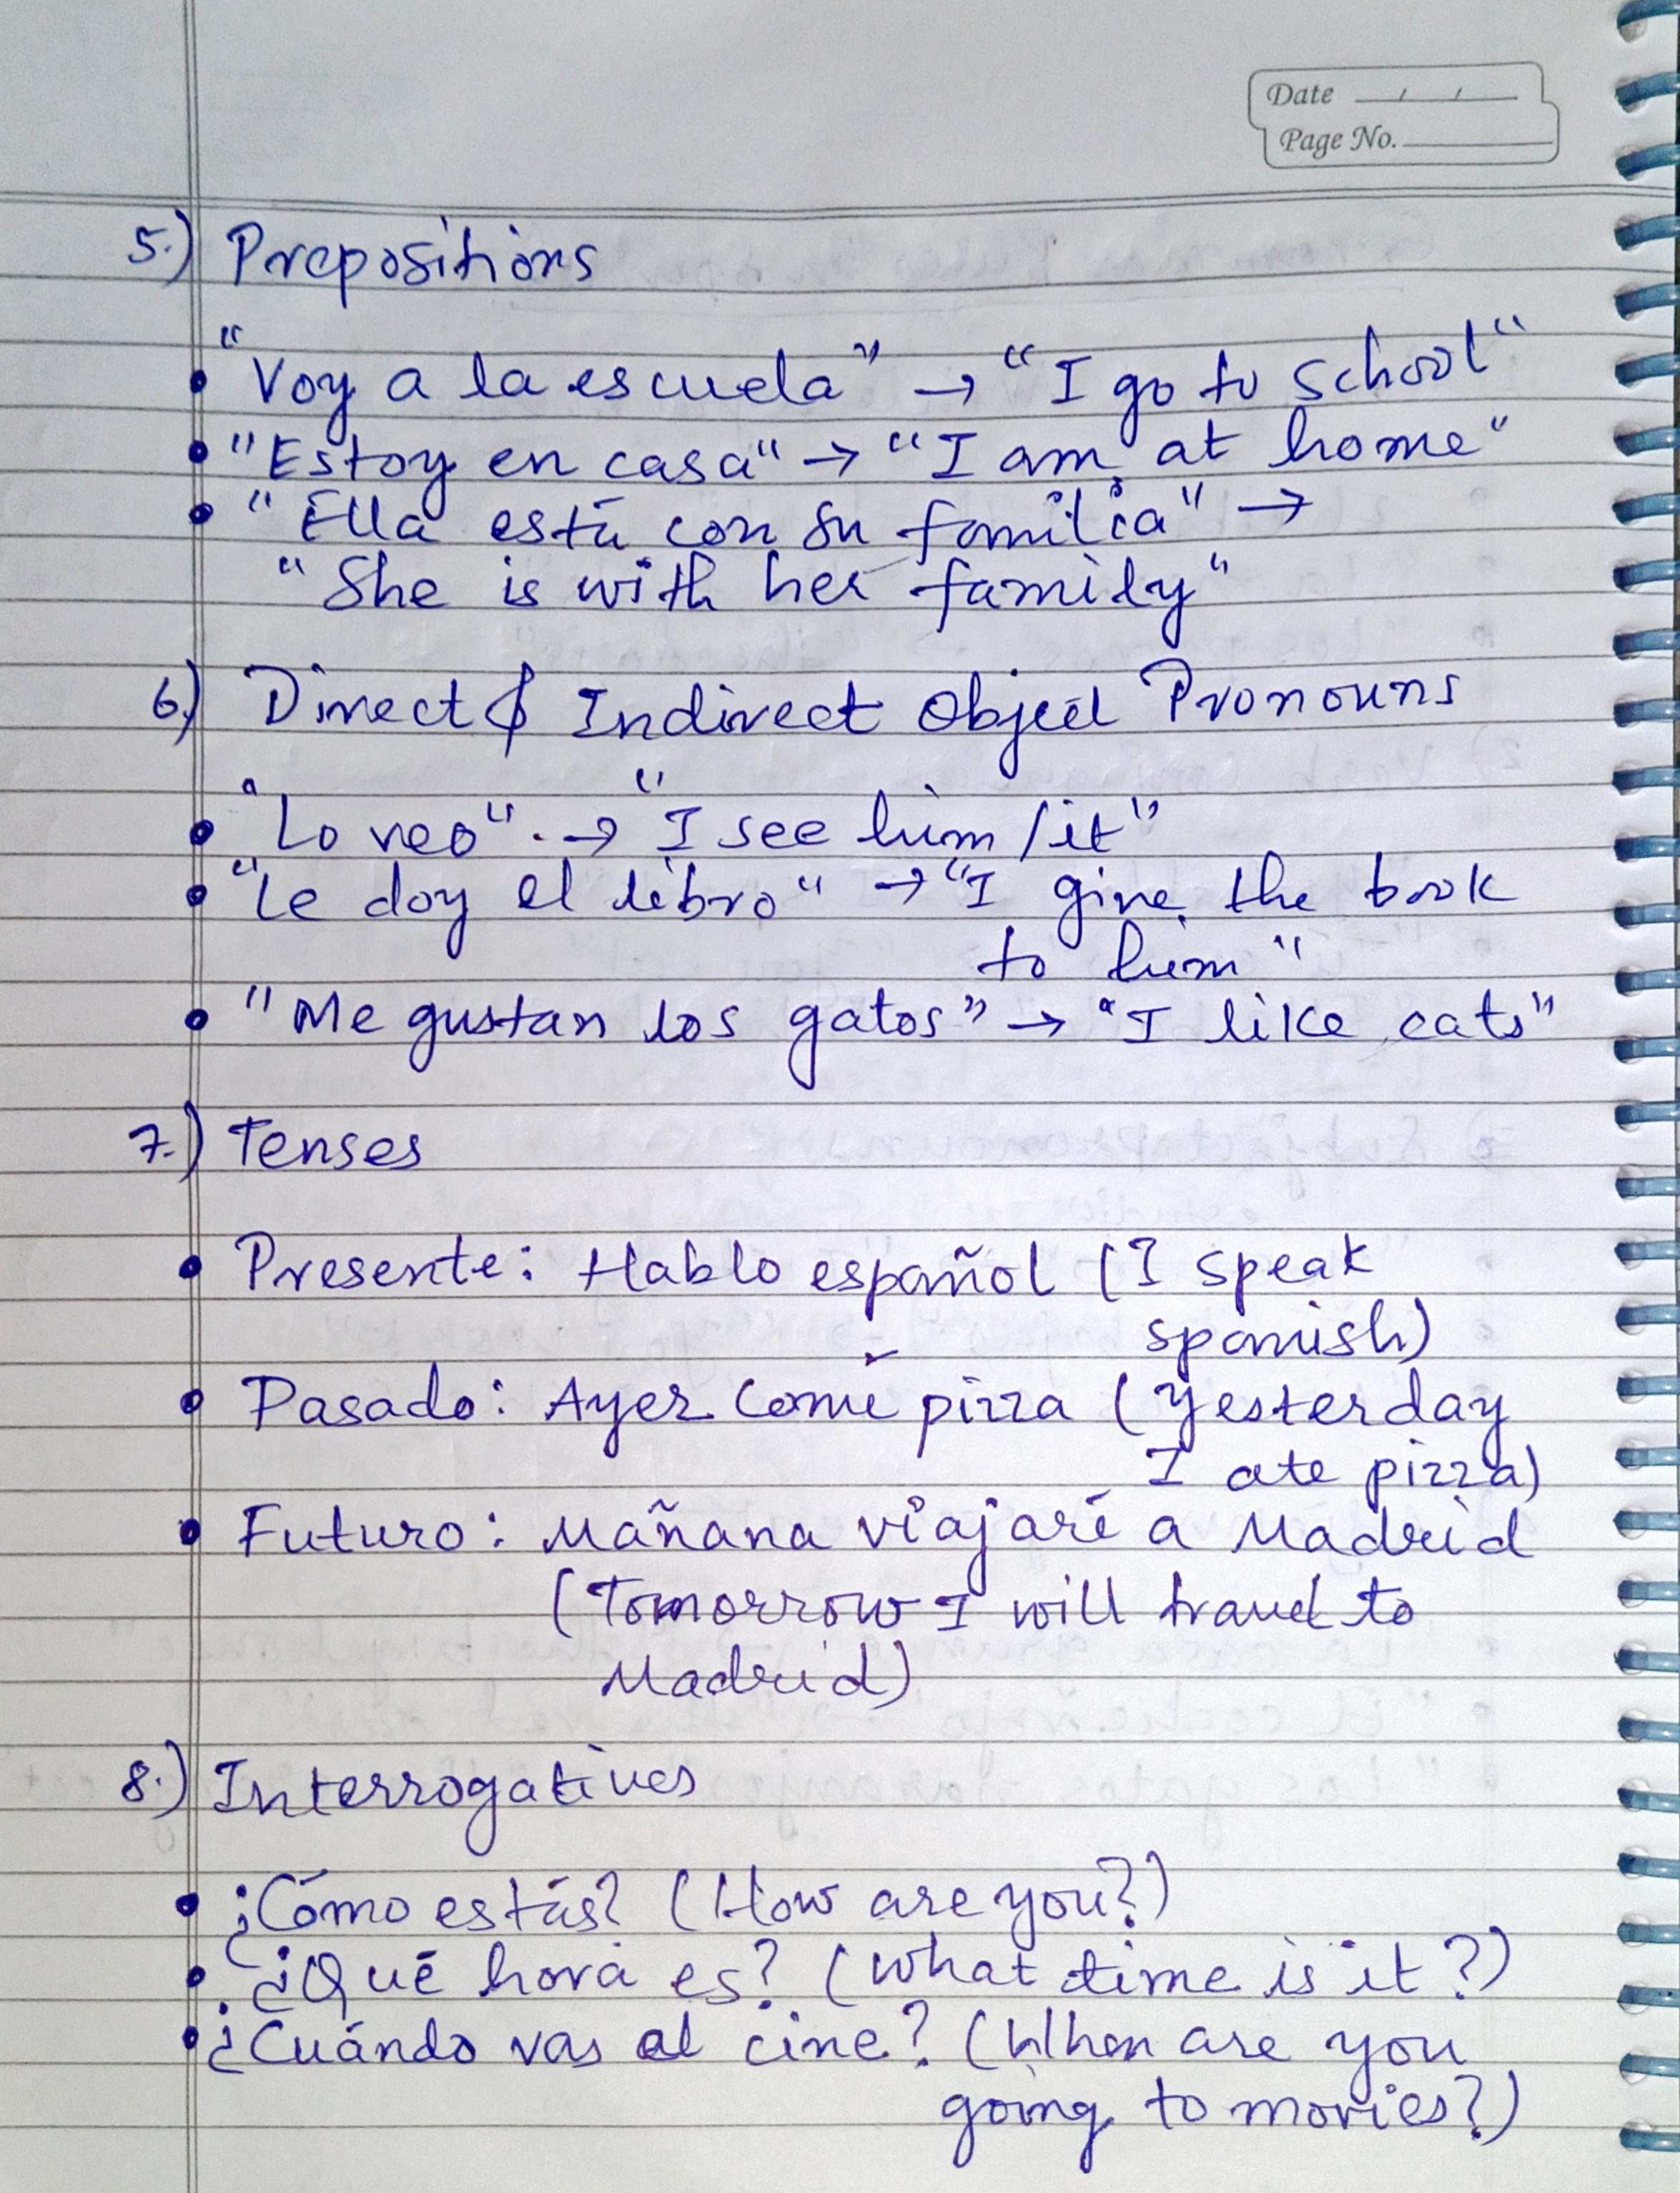 Date / /
Page No.
5.) Prepositions
• "Voy a la escuela" → "I go to school"
• "Estoy en casa" → "I am at home"
• "Ella está con su familia" →
"She is with her family"
6.) Direct & Indirect Object Pronouns
• "Lo veo" → "I see him/it"
• "Le doy el libro" → "I give the book
to him"
• "Me gustan los gatos" → "I like cats"
7.) Tenses
• Presente: Hablo español (I speak
spanish)
• Pasado: Ayer comí pizza (Yesterday
I ate pizza)
• Futuro: Mañana viajaré a Madrid
(Tomorrow I will travel to
Madrid)
8.) Interrogatives
• ¿Cómo estás? (How are you?)
• ¿Qué hora es? (What time is it?)
• ¿Cuándo vas al cine? (When are you
going to movies?)